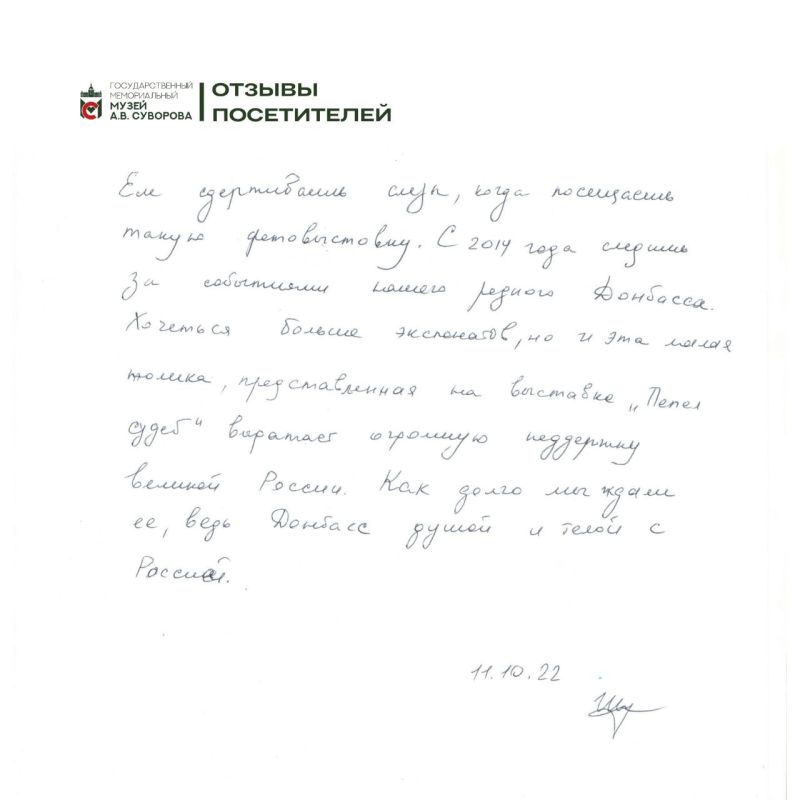 ГОСУДАРСТВЕННЫЙ
МЕМОРИАЛЬНЫЙ
МУЗЕЙ
А.В. СУВОРОВА
ОТЗЫВЫ
ПОСЕТИТЕЛЕЙ
Еле сдерживаешь слезы, когда посещаешь
такую фотовыстовку. С 2014 года следишь
За событиями нашего родного Донбасса.
Хочеться больше экспонатов, но и эта малая
толика, представленная на выставке „Пепел
судеб" выражает огромную поддержку
великой России. Как долго мы ждали
ее, ведь Донбасс душой и телой с
Россией.
11.10.22